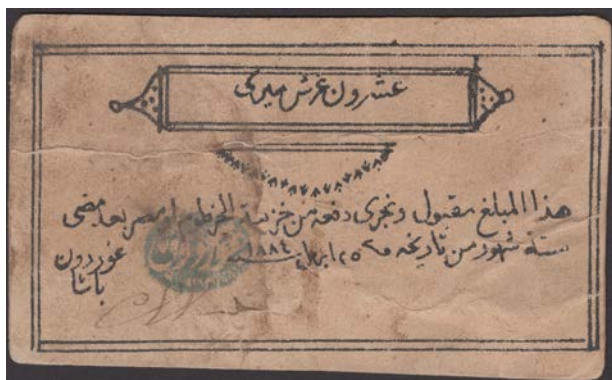 عشرون غرش ميرى
هذا المبلغ مقبول ونجرى دفعه من خزينة الخرطوم او مصر بعد مضى
ستة شهور من تاريخه ٢٥ ابريل سنة ١٨٨٤
غوردون
باشا